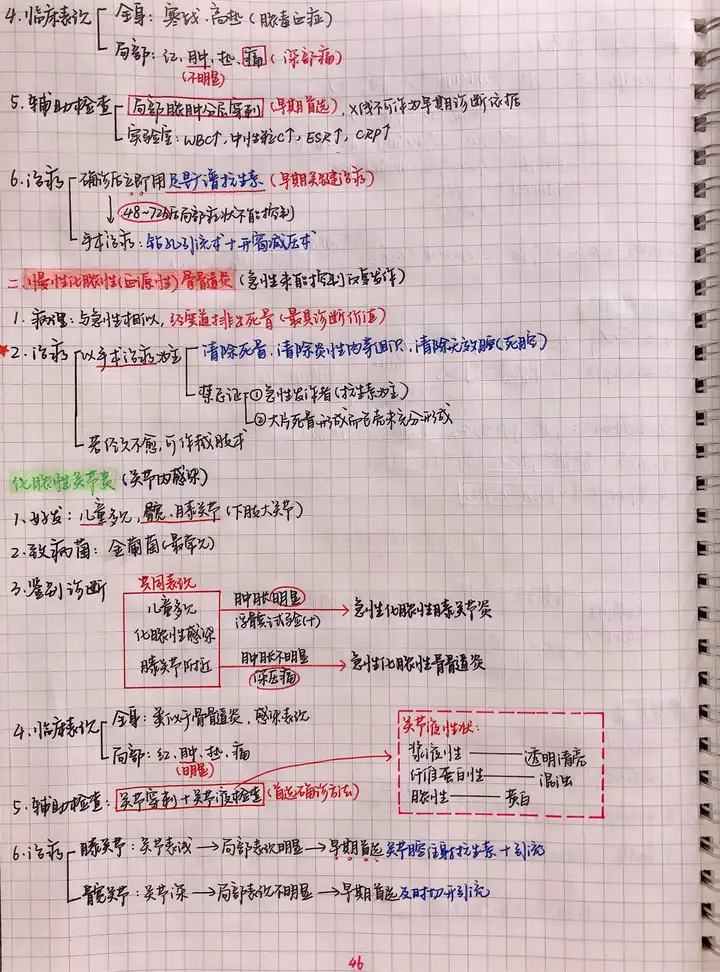 4.临床表现 全身：寒战、高热（脓毒血症）
局部：红、肿、热、痛（深部痛）
（不明显）
5.辅助检查 局部脓肿分层穿刺（早期首选），X线不可作为早期诊断依据
实验室：WBC↑，中性粒C↑，ESR↑，CRP↑
6.治疗 确诊后立即用足量广谱抗生素（早期关键治疗）
↓48~72h后局部症状不能控制
手术治疗：钻孔引流术＋开窗减压术
二.慢性化脓性（血源性）骨髓炎（急性未能控制反复发作）
1.病理：与急性相似，经窦道排出死骨（最具诊断价值）
★2.治疗 以手术治疗为主 清除死骨，清除炎性肉芽组织，清除无效腔（死腔）
禁忌证 ①急性发作者（抗生素为主）
②大片死骨形成而包壳未充分形成
若经久不愈，可作截肢术
化脓性关节炎（关节内感染）
1.好发：儿童多见，髋、膝关节（下肢大关节）
2.致病菌：金葡菌（最常见）
3.鉴别诊断 共同表现
儿童多见 肿胀明显
浮髌试验(+) → 急性化脓性膝关节炎
化脓性感染
膝关节附近 肿胀不明显
深压痛 → 急性化脓性骨髓炎
4.临床表现 全身：类似于骨髓炎，感染表现
局部：红、肿、热、痛
（明显）
5.辅助检查：关节穿刺＋关节液检查（首选确诊方法）
关节液性状：
浆液性——透明清亮
纤维蛋白性——混浊
脓性——黄白
6.治疗 膝关节：关节表浅→局部表现明显→早期首选关节腔注射抗生素＋引流
髋关节：关节深→局部表现不明显→早期首选及时切开引流
46